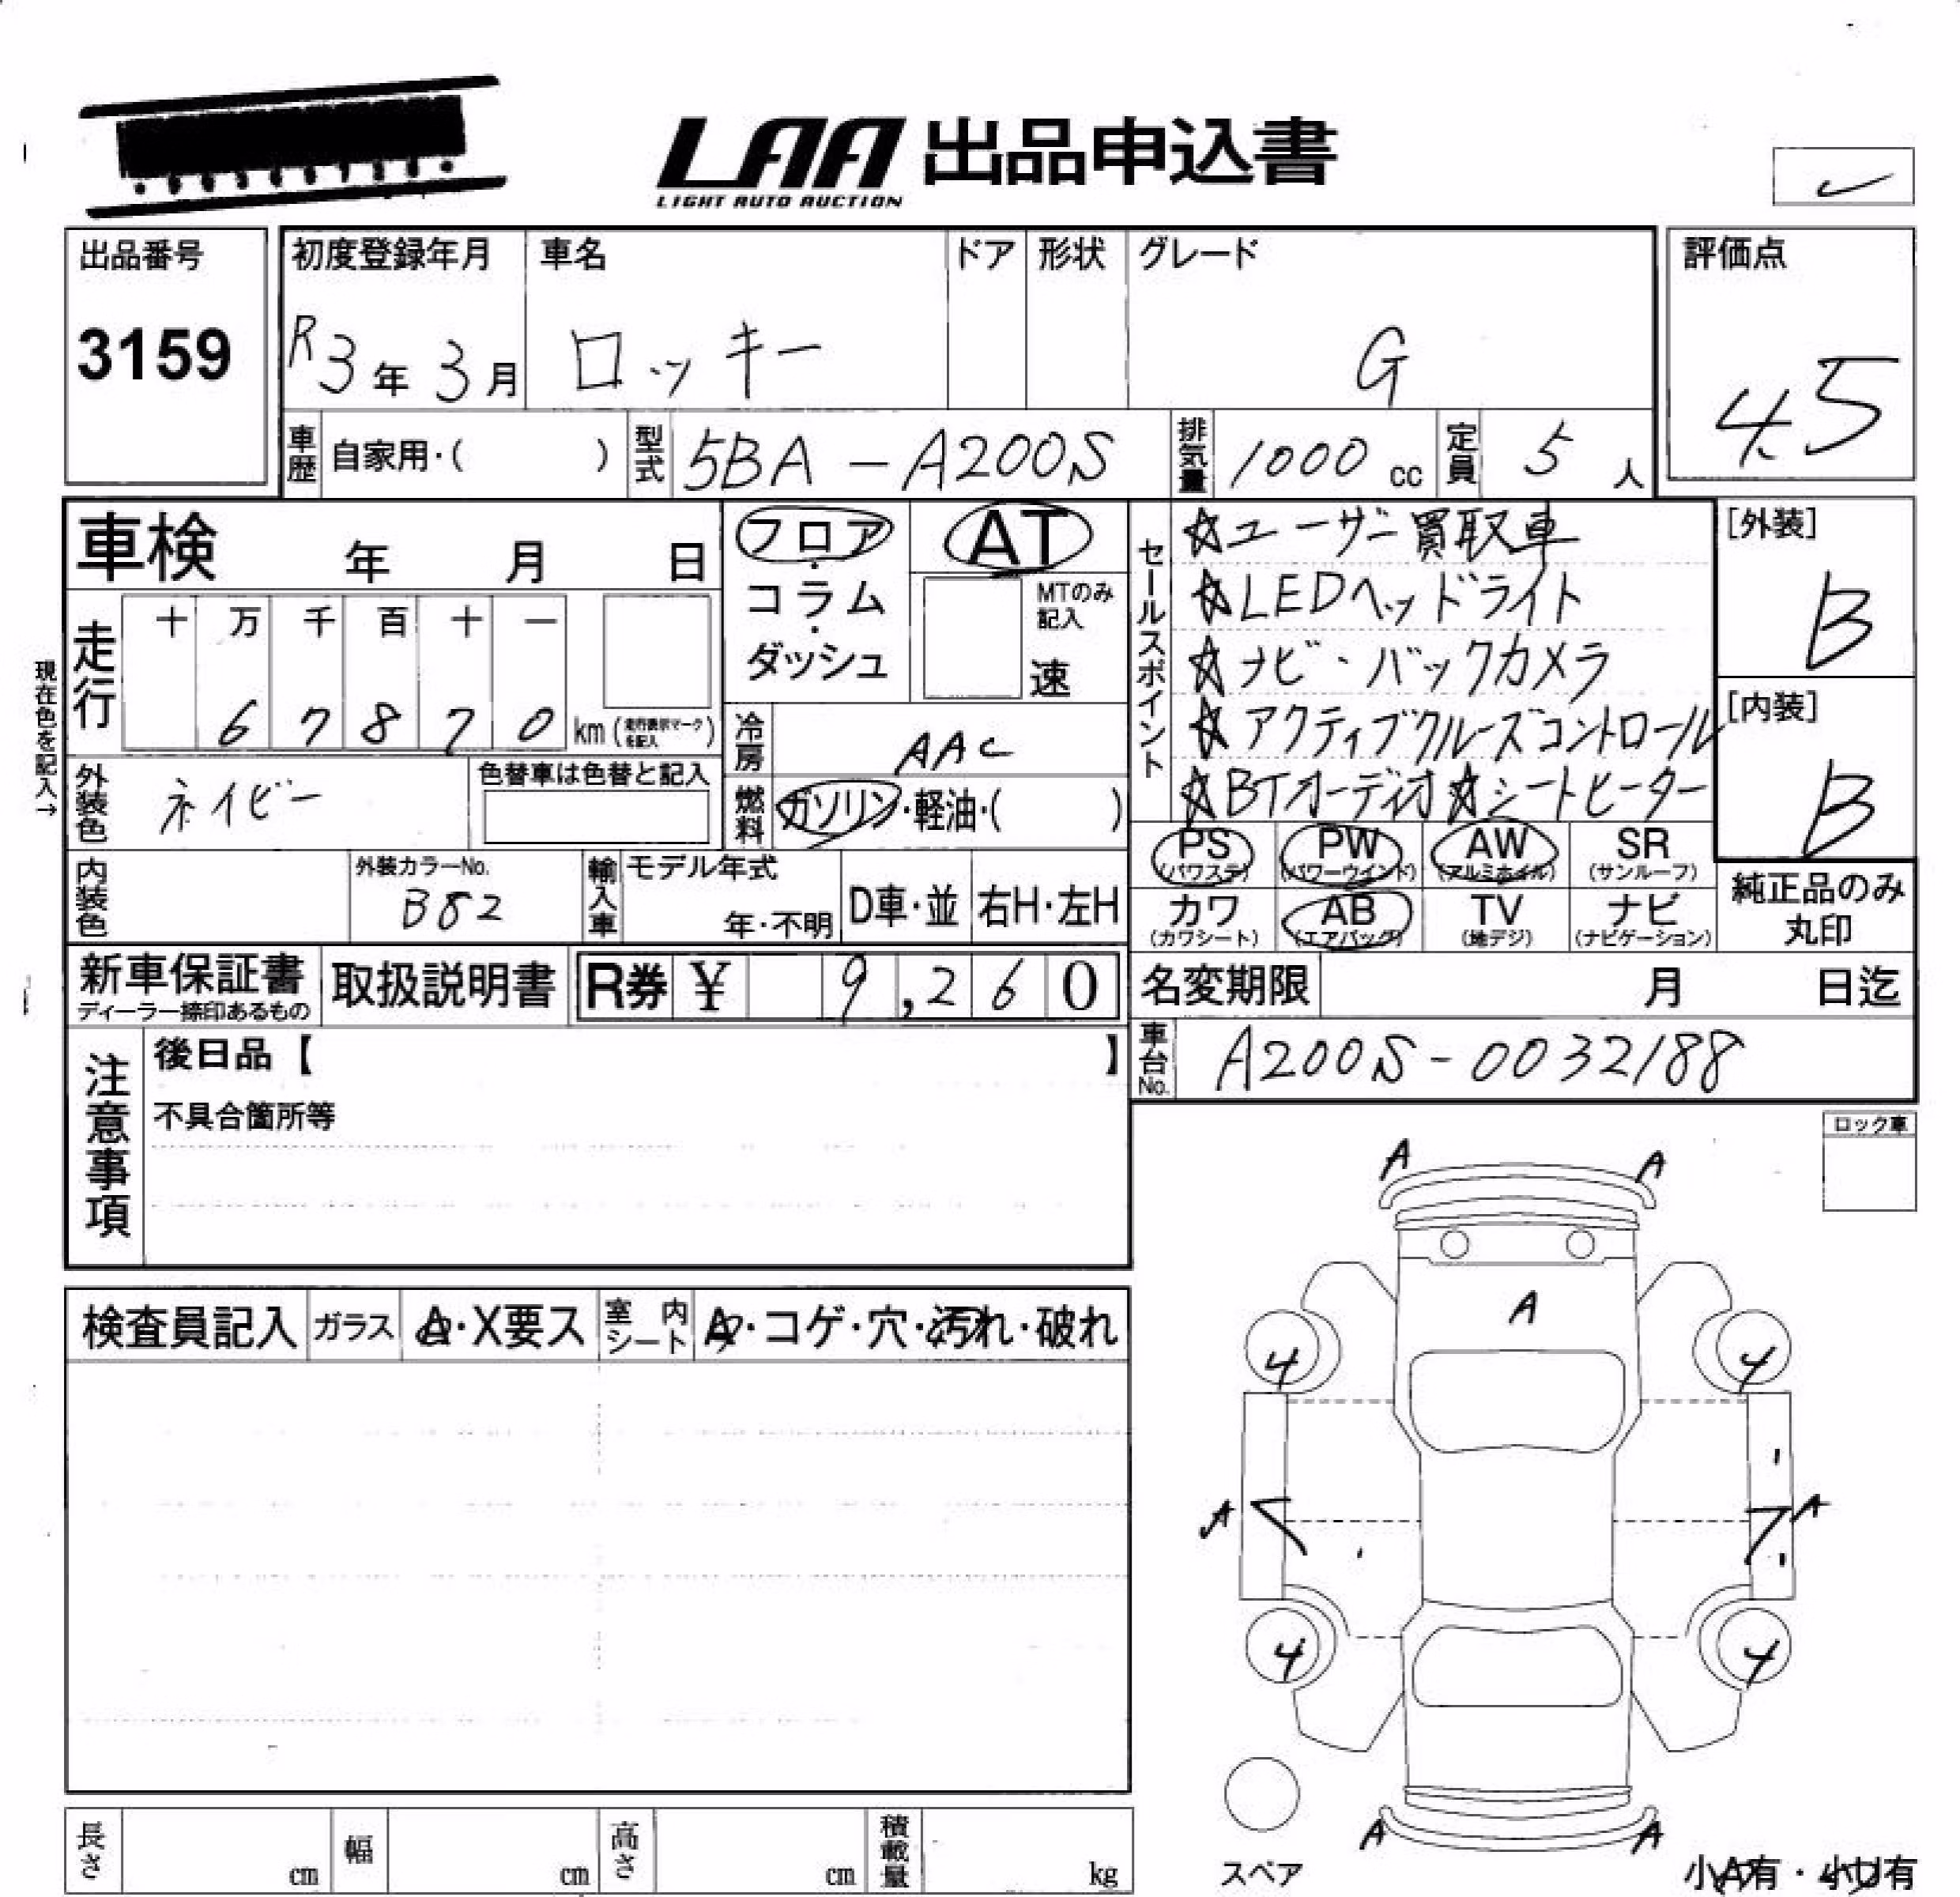 LAA 出品申込書
LIGHT AUTO AUCTION
出品番号
3159
初度登録年月
R3年 3月
車名
ロッキー
ドア
形状
グレード
G
評価点
4.5
車歴 自家用・( )
型式 5BA-A200S
排気量 1000 cc
定員 5 人
車検 年 月 日
フロア・コラム・ダッシュ
AT
MTのみ記入
速
セールスポイント
☆ユーザー買取車
☆LEDヘッドライト
☆ナビ・バックカメラ
☆アクティブクルーズコントロール
☆BTオーディオ☆シートヒーター
[外装]
B
[内装]
B
現在色を記入→
走行
十 万 千 百 十 一
6 7 8 7 0 km (走行表示マークを記入)
冷房 AAC
外装色 ネイビー
色替車は色替と記入
燃料 ガソリン・軽油・( )
PS (パワステ)
PW (パワーウインド)
AW (アルミホイル)
SR (サンルーフ)
カワ (カワシート)
AB (エアバッグ)
TV (地デジ)
ナビ (ナビゲーション)
純正品のみ丸印
内装色
外装カラーNo.
B82
輸入車 モデル年式
年・不明
D車・並
右H・左H
新車保証書
ディーラー捺印あるもの
取扱説明書
R券 ¥ 9,260
名変期限 月 日迄
車台No. A200S-0032188
注意事項
後日品【 】
不具合箇所等
ロック車
A A
A
4 4
A A
4 4
A A
検査員記入 ガラス A・X要ス 室内シート A・コゲ・穴・汚れ・破れ
長さ cm 幅 cm 高さ cm 積載量 kg
スペア
小A有・小U有